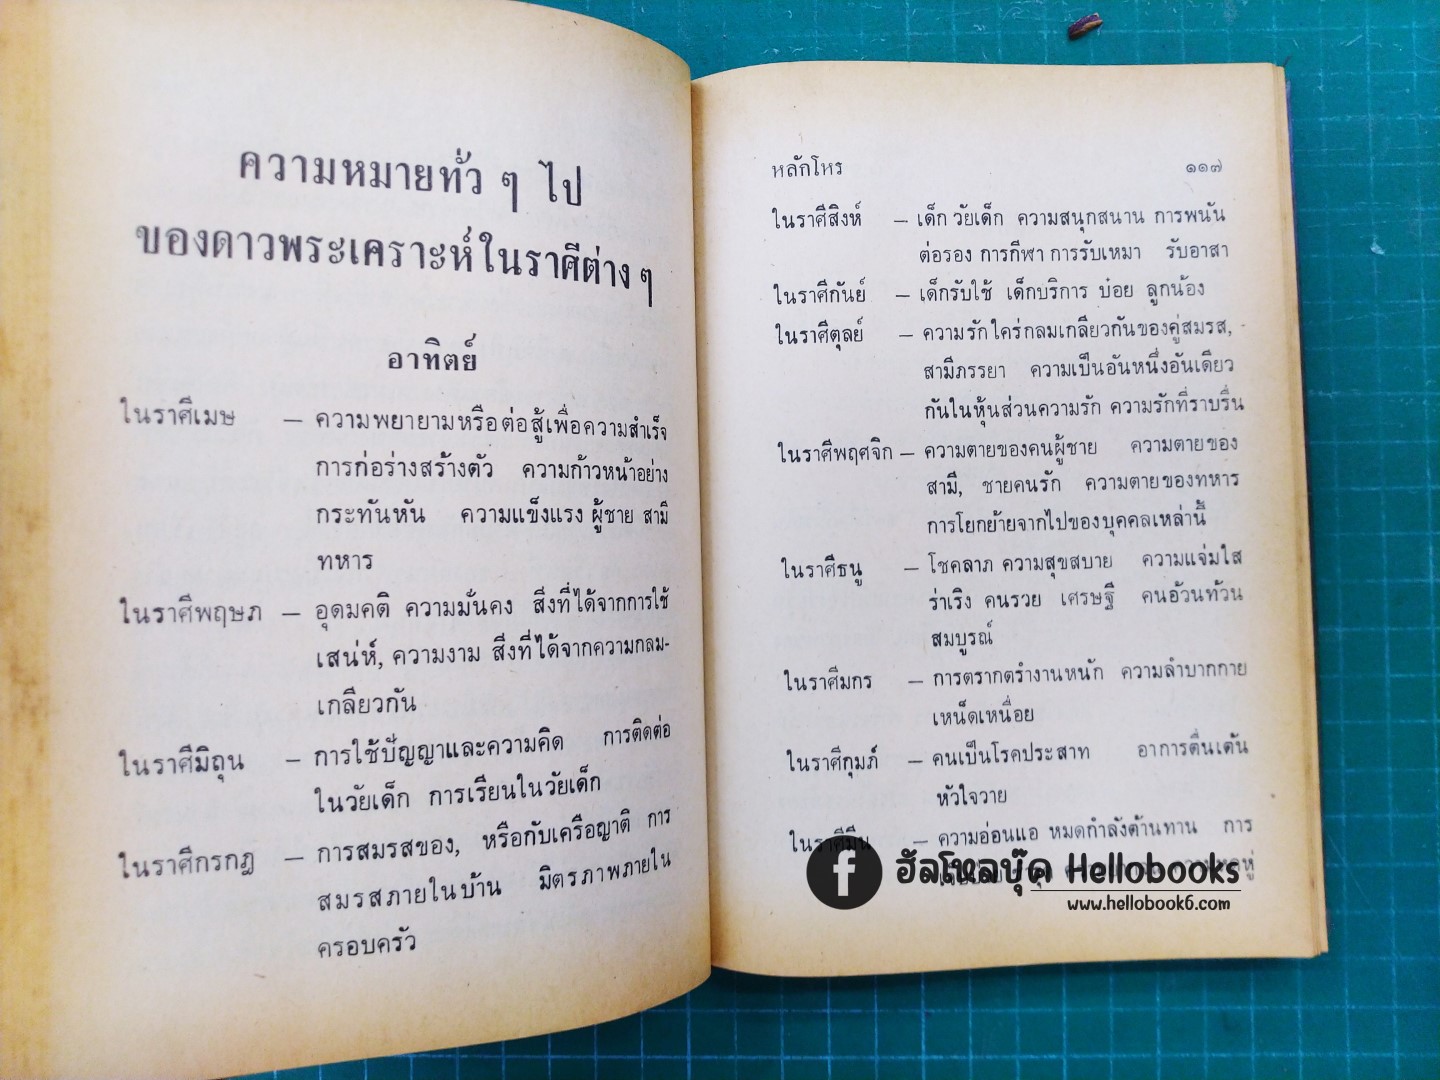 ความหมายทั่ว ๆ ไป
ของดาวพระเคราะห์ในราศีต่าง ๆ
อาทิตย์
ในราศีเมษ – ความพยายามหรือต่อสู้เพื่อความสำเร็จ
การก่อร่างสร้างตัว ความก้าวหน้าอย่าง
กระทันหัน ความแข็งแรง ผู้ชาย สามี
ทหาร
ในราศีพฤษภ – อุดมคติ ความมั่นคง สิ่งที่ได้จากการใช้
เสน่ห์, ความงาม สิ่งที่ได้จากความกลม-
เกลียวกัน
ในราศีมิถุน – การใช้ปัญญาและความคิด การติดต่อ
ในวัยเด็ก การเรียนในวัยเด็ก
ในราศีกรกฎ – การสมรสของ, หรือกับเครือญาติ การ
สมรสภายในบ้าน มิตรภาพภายใน
ครอบครัว
หลักโหร ๑๑๗
ในราศีสิงห์ – เด็ก วัยเด็ก ความสนุกสนาน การพนัน
ต่อรอง การกีฬา การรับเหมา รับอาสา
ในราศีกันย์ – เด็กรับใช้ เด็กบริการ บ๋อย ลูกน้อง
ในราศีตุลย์ – ความรักใคร่กลมเกลียวกันของคู่สมรส,
สามีภรรยา ความเป็นอันหนึ่งอันเดียว
กันในหุ้นส่วนความรัก ความรักที่ราบรื่น
ในราศีพฤศจิก – ความตายของคนผู้ชาย ความตายของ
สามี, ชายคนรัก ความตายของทหาร
การโยกย้ายจากไปของบุคคลเหล่านี้
ในราศีธนู – โชคลาภ ความสุขสบาย ความแจ่มใส
ร่าเริง คนรวย เศรษฐี คนอ้วนท้วน
สมบูรณ์
ในราศีมกร – การตรากตรำงานหนัก ความลำบากกาย
เหน็ดเหนื่อย
ในราศีกุมภ์ – คนเป็นโรคประสาท อาการตื่นเต้น
หัวใจวาย
ในราศีมีน – ความอ่อนแอ หมดกำลังต้านทาน การ
ฮัลโหลบุ๊ค Hellobooks
www.hellobook6.com